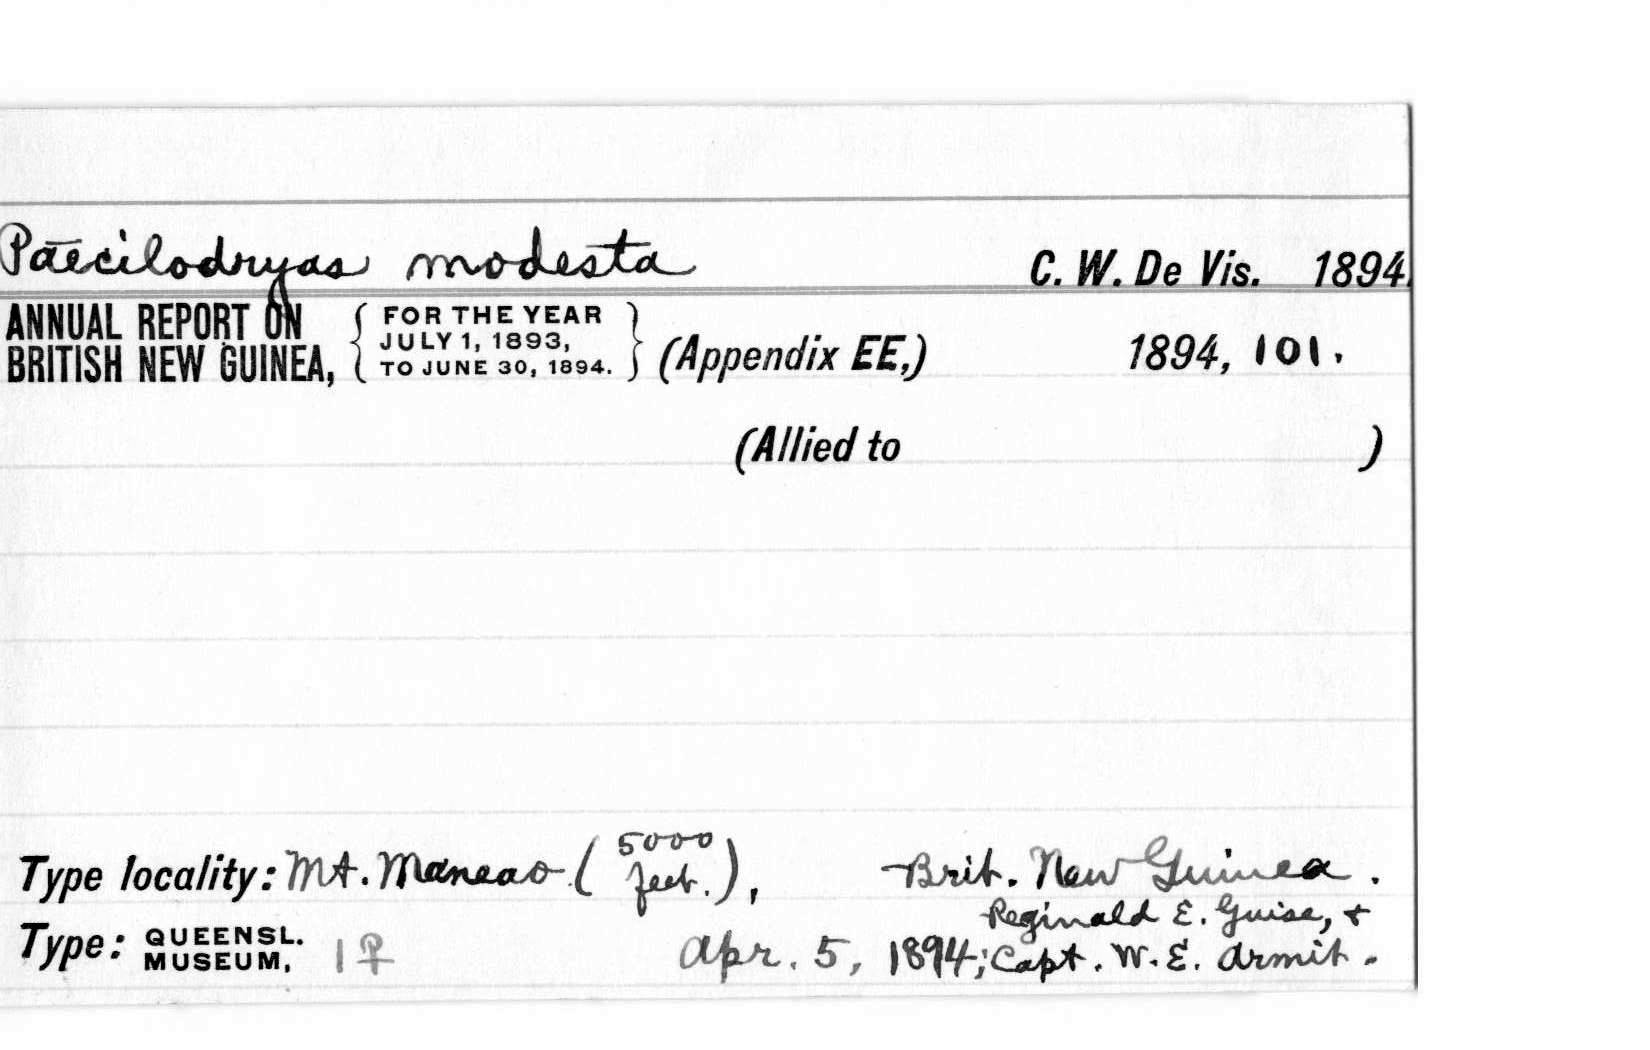 Paecilodryas modesta C. W. De Vis. 1894.
ANNUAL REPORT ON BRITISH NEW GUINEA, { FOR THE YEAR JULY 1, 1893, TO JUNE 30, 1894. } (Appendix EE,) 1894, 101.
(Allied to )
Type locality: Mt. Maneao (5000 feet.), Brit. New Guinea.
Reginald E. Guise, +
Type: QUEENSL. MUSEUM, 1♀ Apr. 5, 1894; Capt. W. E. Armit.